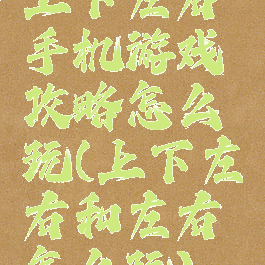 上下左右
手机游戏
攻略怎么
玩(上下左
右和左右
怎么玩)